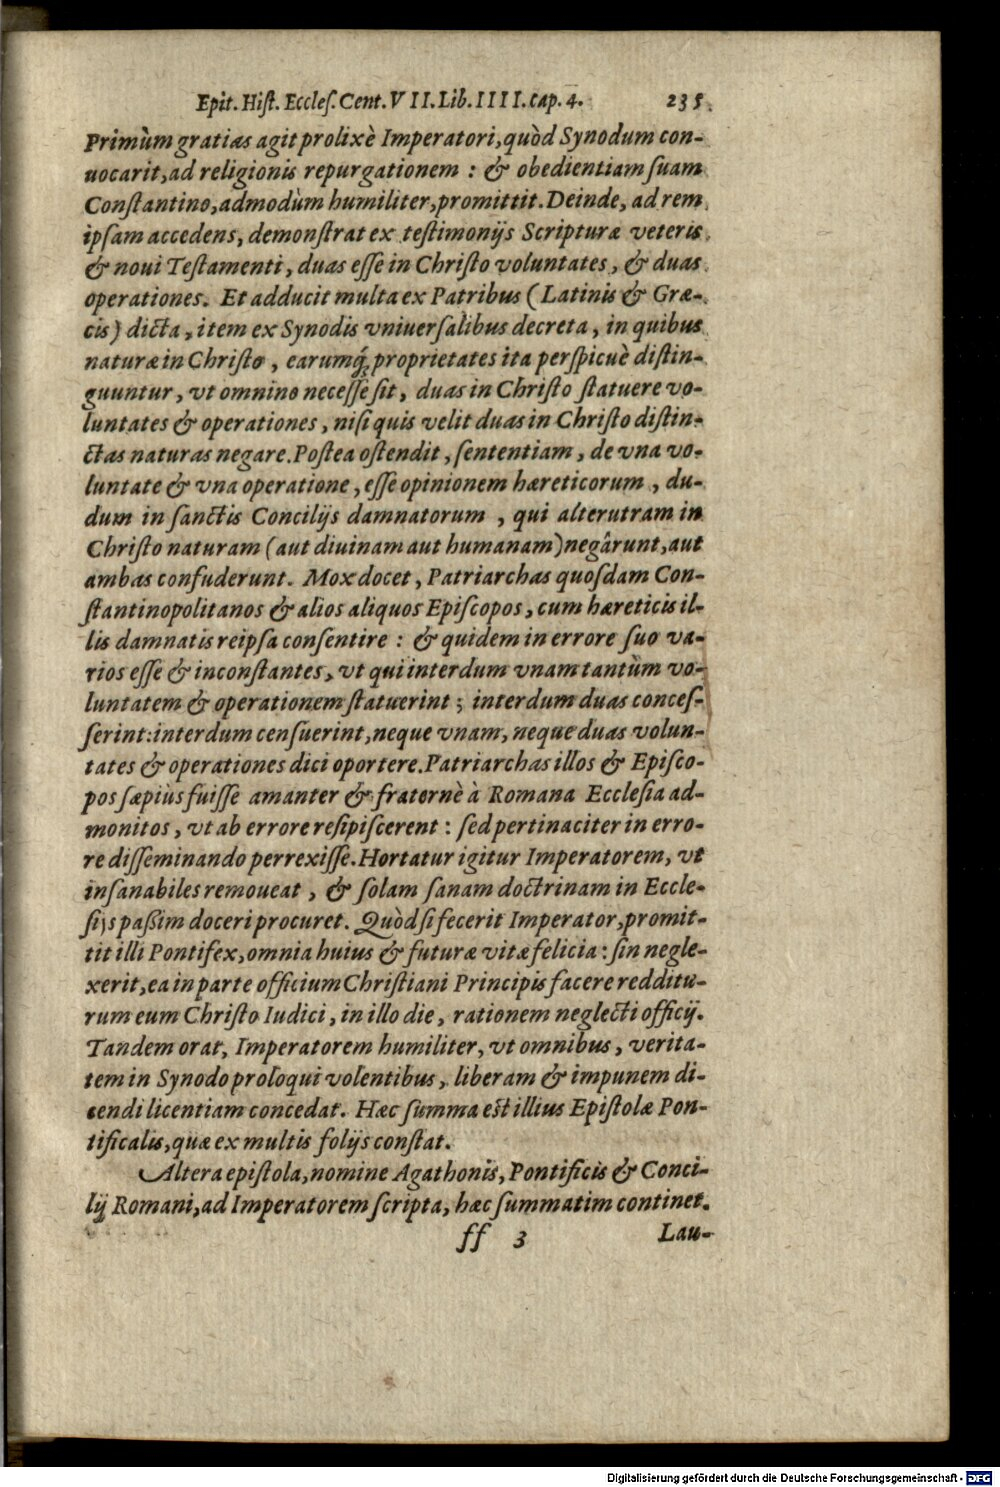 Epit. Hiſt. Eccleſ. Cent. VII. Lib. IIII. cap. 4. 235.
Primùm gratias agit prolixè Imperatori, quòd Synodum con-
uocarit, ad religionis repurgationem : & obedientiam ſuam
Conſtantino, admodùm humiliter, promittit. Deinde, ad rem
ipſam accedens, demonſtrat ex teſtimonijs Scripturæ veteris
& noui Teſtamenti, duas eſſe in Chriſto voluntates, & duas
operationes. Et adducit multa ex Patribus (Latinis & Græ-
cis) dicta, item ex Synodis vniuerſalibus decreta, in quibus
naturæ in Chriſto, earumq́; proprietates ita perſpicuè diſtin-
guuntur, vt omnino neceſſe ſit, duas in Chriſto ſtatuere vo-
luntates & operationes, niſi quis velit duas in Chriſto diſtin-
ctas naturas negare. Poſtea oſtendit, ſententiam, de vna vo-
luntate & vna operatione, eſſe opinionem hæreticorum, du-
dum in ſanctis Concilijs damnatorum, qui alterutram in
Chriſto naturam (aut diuinam aut humanam) negârunt, aut
ambas confuderunt. Mox docet, Patriarchas quoſdam Con-
ſtantinopolitanos & alios aliquos Epiſcopos, cum hæreticis il-
lis damnatis reipſa conſentire : & quidem in errore ſuo va-
rios eſſe & inconſtantes, vt qui interdum vnam tantùm vo-
luntatem & operationem ſtatuerint ; interdum duas conceſ-
ſerint: interdum cenſuerint, neque vnam, neque duas volun-
tates & operationes dici oportere. Patriarchas illos & Epiſco-
pos ſæpiùs fuiſſe amanter & fraternè à Romana Eccleſia ad-
monitos, vt ab errore reſipiſcerent : ſed pertinaciter in erro-
re diſſeminando perrexiſſe. Hortatur igitur Imperatorem, vt
inſanabiles remoueat, & ſolam ſanam doctrinam in Eccle-
ſijs paßim doceri procuret. Quòd ſi fecerit Imperator, promit-
tit illi Pontifex, omnia huius & futuræ vitæ felicia : ſin negle-
xerit, ea in parte officium Chriſtiani Principis facere redditu-
rum eum Chriſto Iudici, in illo die, rationem neglecti officij.
Tandem orat, Imperatorem humiliter, vt omnibus, verita-
tem in Synodo proloqui volentibus, liberam & impunem di-
cendi licentiam concedat. Hæc ſumma eſt illius Epiſtolæ Pon-
tificalis, quæ ex multis folijs conſtat.
Altera epiſtola, nomine Agathonis, Pontificis & Conci-
lij Romani, ad Imperatorem ſcripta, hæc ſummatim continet.
ff 3 Lau-
Digitalisierung gefördert durch die Deutsche Forschungsgemeinschaft - DFG